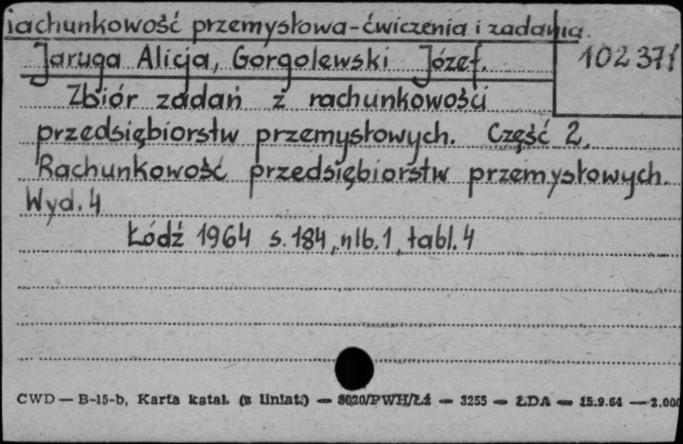 rachunkowość przemysłowa - ćwiczenia i zadania.
Jaruga Alicja, Gorgolewski Józef.
102371
Zbiór zadań z rachunkowości
przedsiębiorstw przemysłowych. Część 2.
Rachunkowość przedsiębiorstw przemysłowych.
Wyd. 4
Łódź 1964 s. 184, nlb. 1, tabl. 4
CWD — B-15-b, Karta katal. (z liniat.) — 8020/PWH/Łź — 3255 — ŁDA — 15.9.64 — 2.000